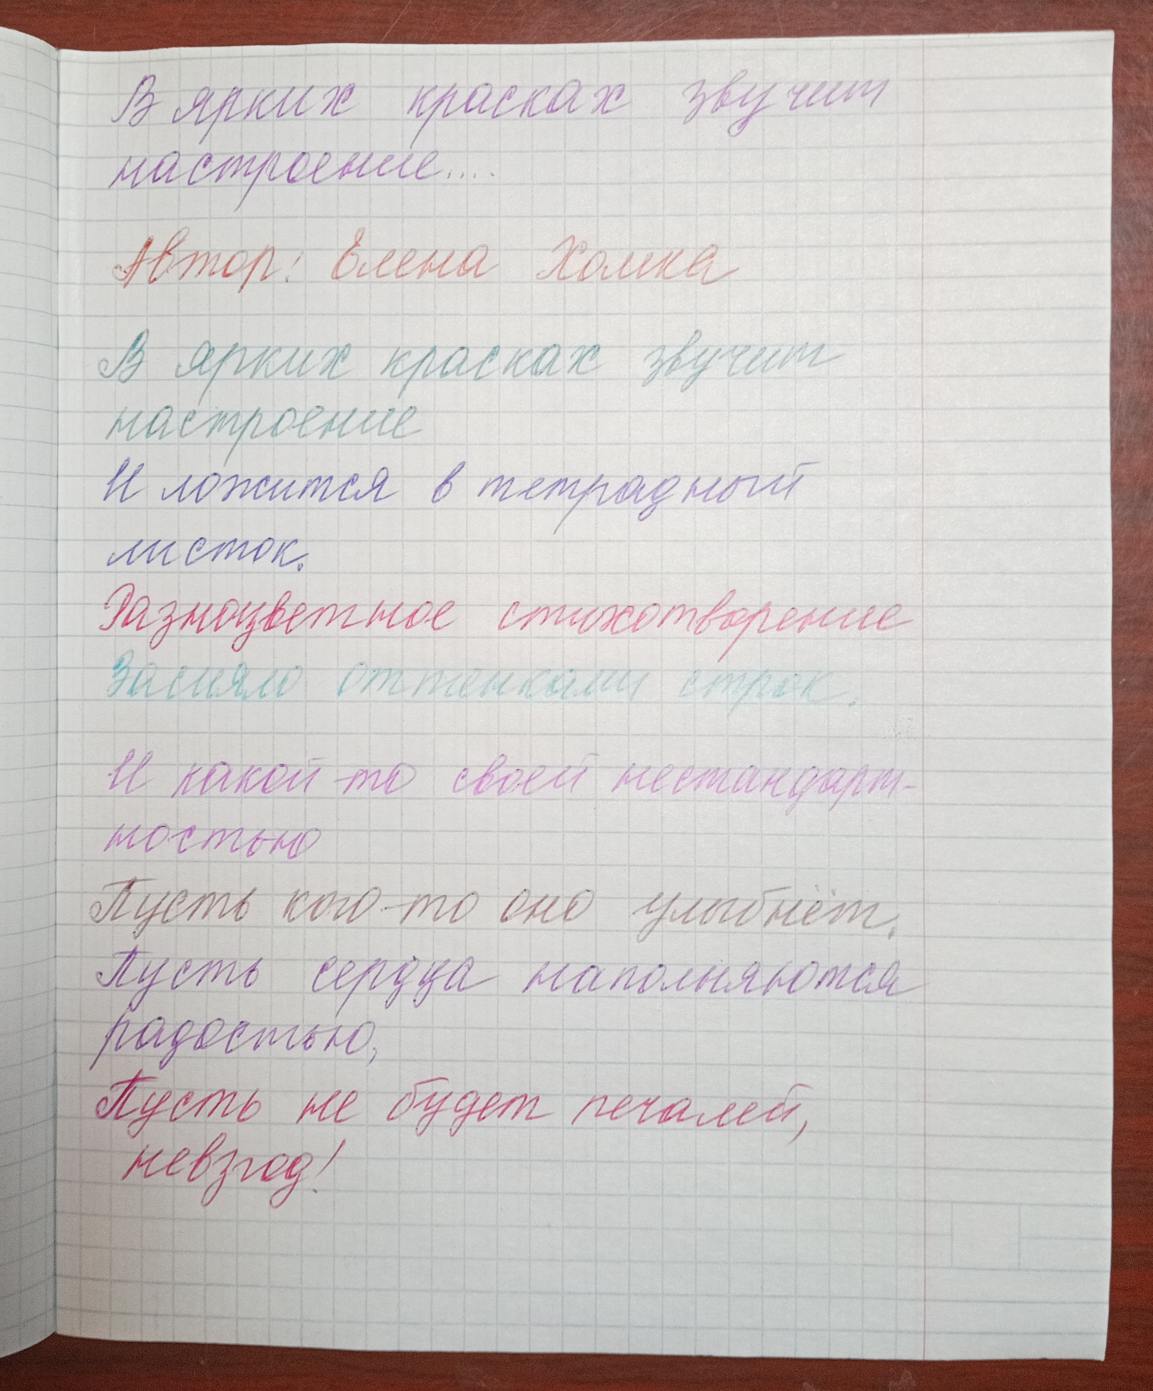 В ярких красках звучит
настроение....
Автор: Елена Хомка
В ярких красках звучит
настроение
И ложится в тетрадный
листок.
Разноцветное стихотворение
Засияло оттенками строк.
И какой-то своей нестандарт-
ностью
Пусть кого-то оно улыбнёт.
Пусть сердца наполняются
радостью,
Пусть не будет печалей,
невзгод!